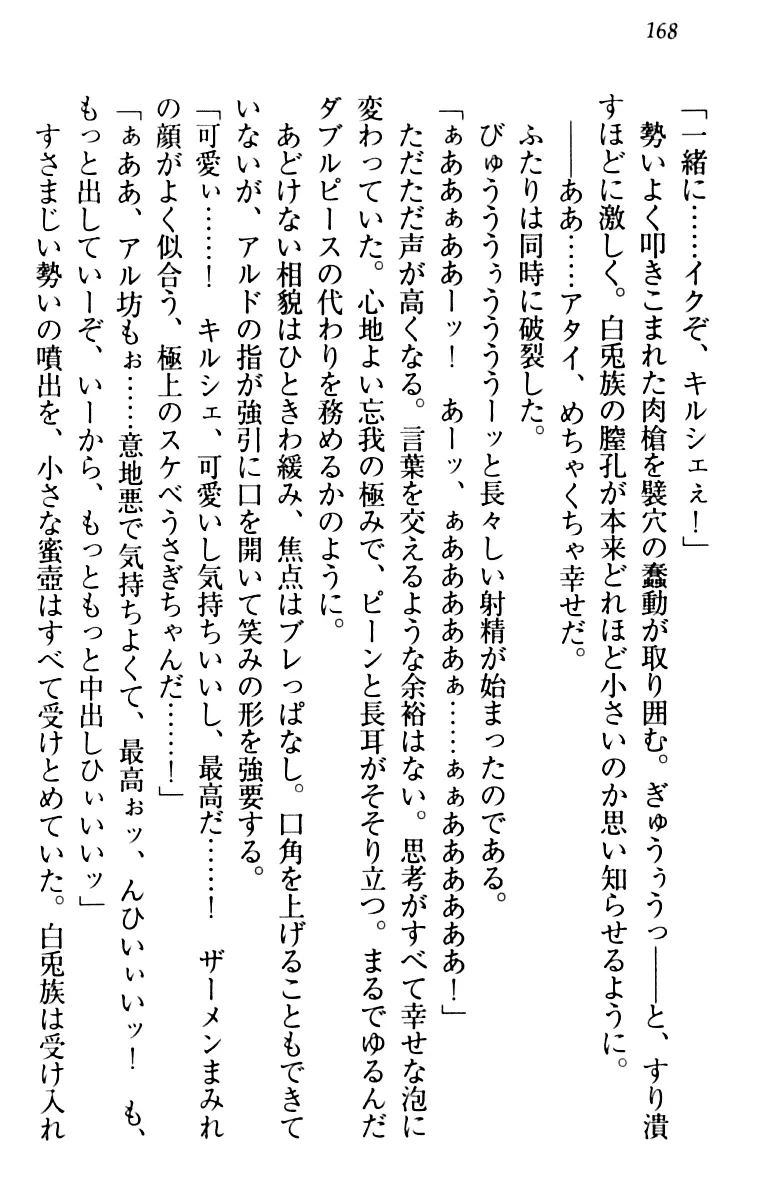 168
「一緒に……イクぞ、キルシェぇ！」
勢いよく叩きこまれた肉槍を襞穴の蠢動が取り囲む。ぎゅうぅうっ――と、すり潰
すほどに激しく。白兎族の膣孔が本来どれほど小さいのか思い知らせるように。
――ああ……アタイ、めちゃくちゃ幸せだ。
ふたりは同時に破裂した。
びゅうううぅうううーッと長々しい射精が始まったのである。
「ぁああぁああーッ！　あーッ、ぁああああぁ……ぁぁああああああ！」
ただただ声が高くなる。言葉を交えるような余裕はない。思考がすべて幸せな泡に
変わっていた。心地よい忘我の極みで、ピーンと長耳がそそり立つ。まるでゆるんだ
ダブルピースの代わりを務めるかのように。
あどけない相貌はひときわ緩み、焦点はブレっぱなし。口角を上げることもできて
いないが、アルドの指が強引に口を開いて笑みの形を強要する。
「可愛ぃ……！　キルシェ、可愛いし気持ちいいし、最高だ……！　ザーメンまみれ
の顔がよく似合う、極上のスケベうさぎちゃんだ……！」
「ぁああ、アル坊もぉ……意地悪で気持ちよくて、最高ぉッ、んひいぃいッ！　も、
もっと出していーぞ、いーから、もっともっと中出しひぃいいッ」
すさまじい勢いの噴出を、小さな蜜壺はすべて受けとめていた。白兎族は受け入れ